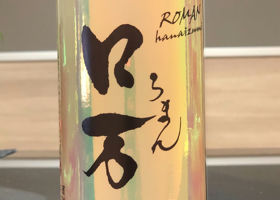 ROMAN
hanaizumi
ロ万
ろまん